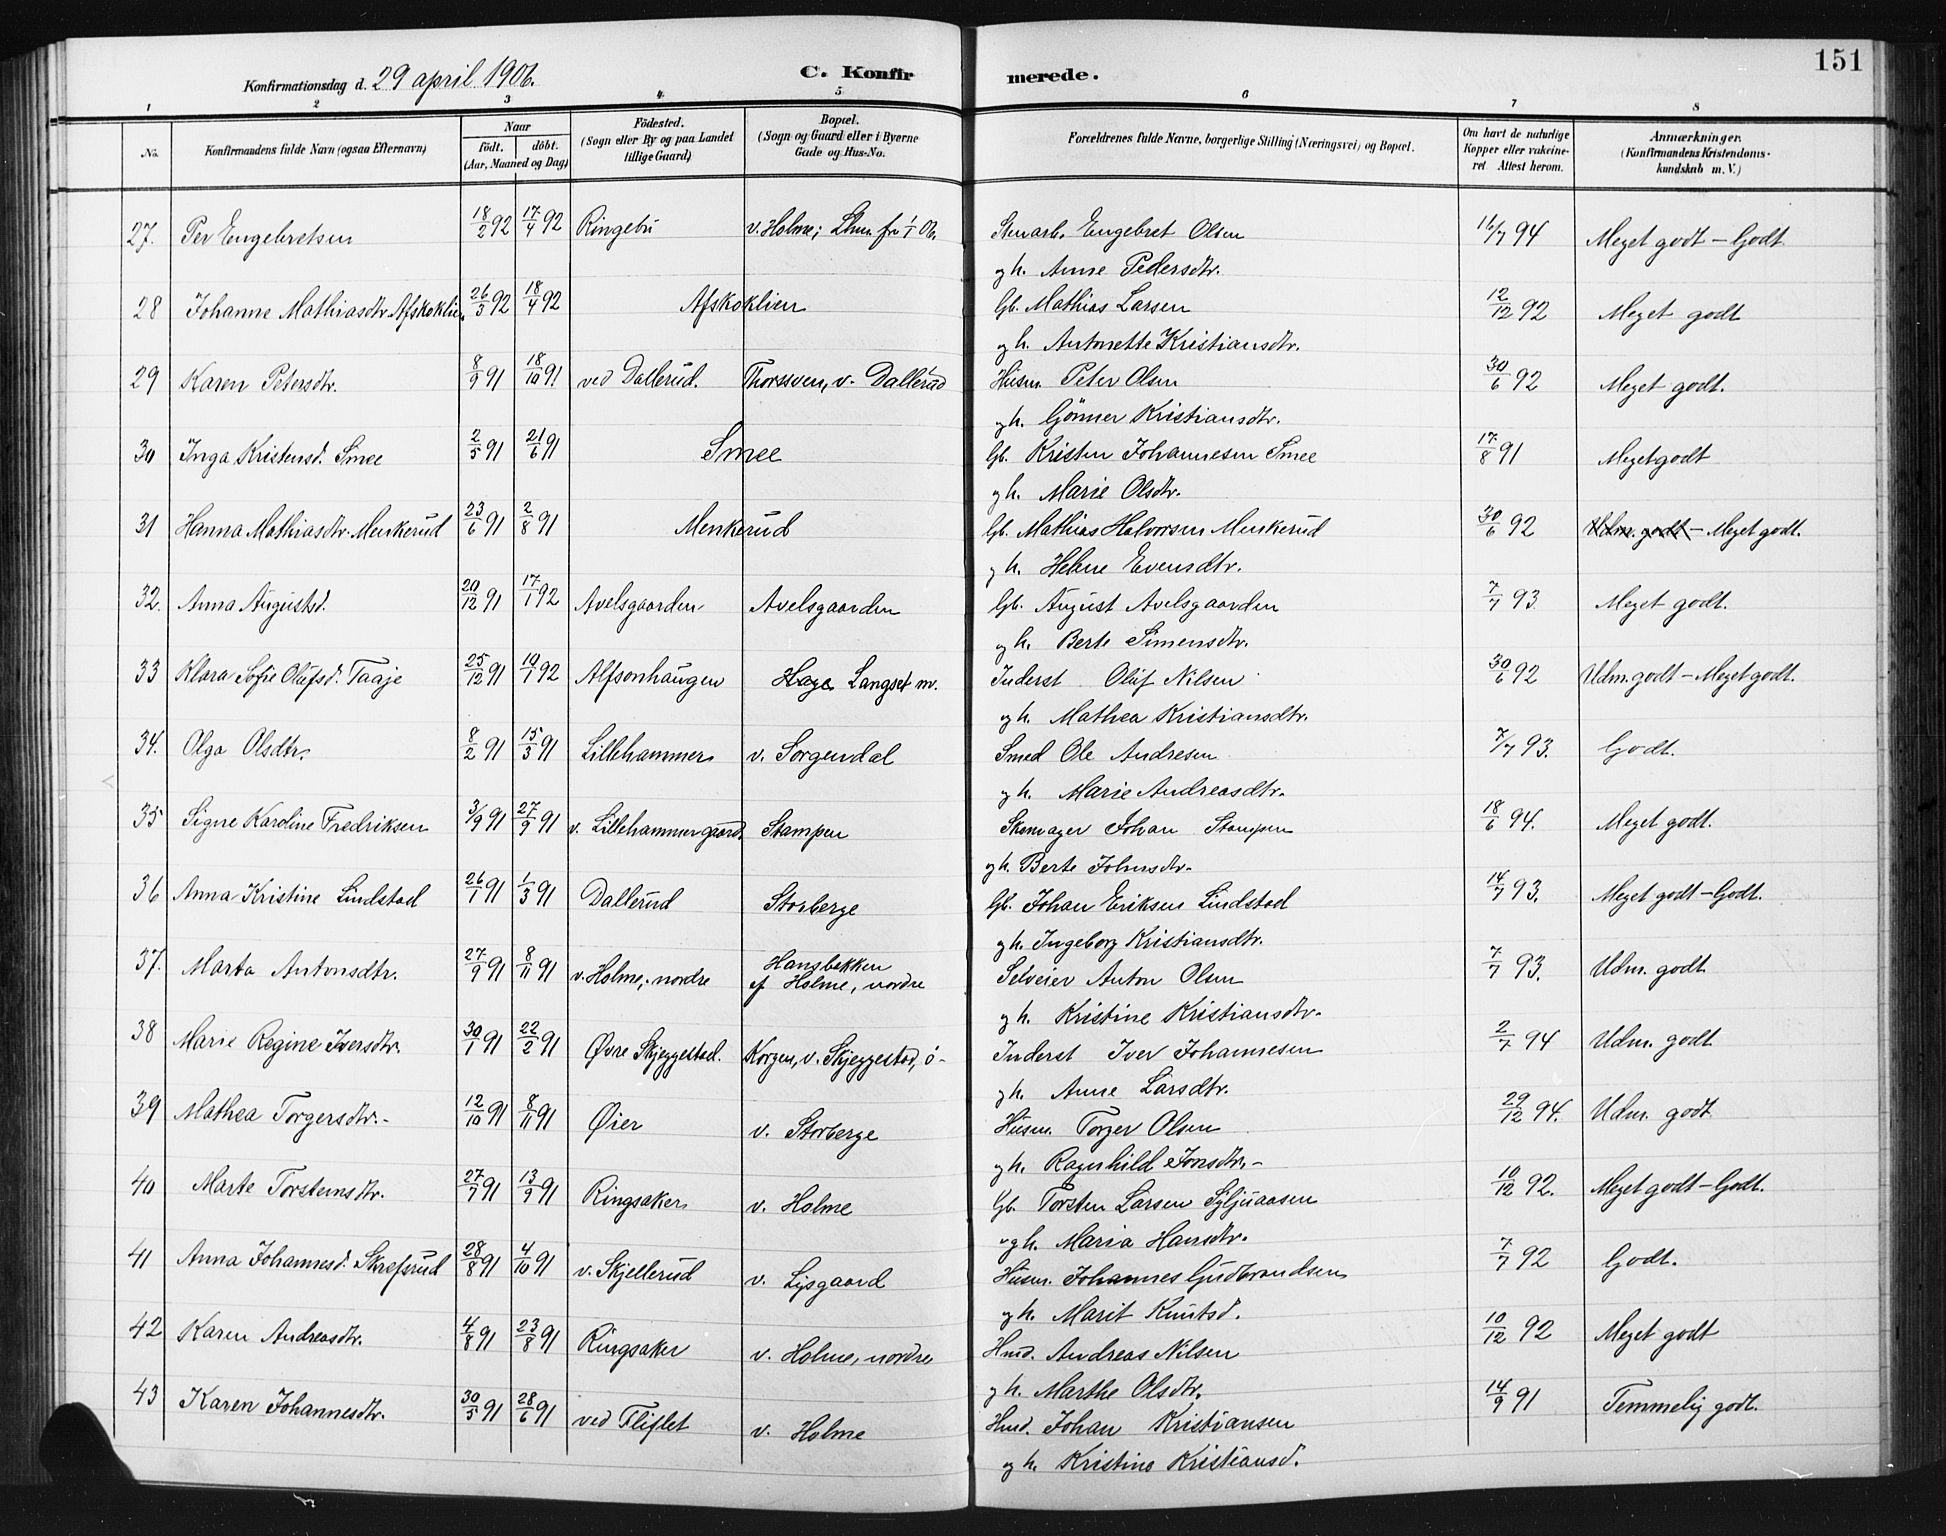 151
Konfirmationsdag d. 29 april 1906.
C. Konfirmerede.
1 2 3 4 5 6 7 8
No. Konfirmandens fulde Navn (ogsaa Efternavn) Naar födt. döbt. (Aar, Maaned og Dag) Födested. (Sogn eller By og paa Landet tillige Gaard) Bopæl. (Sogn og Gaard eller i Byerne Gade og Hus-No. Forældrenes fulde Navne, borgerlige Stilling (Næringsvei) og Bopæl. Om havt de naturlige Kopper eller vakcineret Attest herom. Anmærkninger. (Konfirmandens Kristendomskundskab m. V.)
27. Per Engebretsen 18/2 92 17/4 92 Ringebu v. Holme; Stenarb. Engebret Olsen 16/7 94 Meget godt - Godt
og h. Anne Pedersdtr.
28 Johanne Mathiasdtr. Afskoklien 26/3 92 18/4 92 Afskoklien Gb. Mathias Larsen 12/12 92 Meget godt
og h. Antonette Kristiansdtr.
29 Karen Petersdtr. 8/9 91 18/10 91 ved Dallerud. Thorssven, v. Dallerud Husm. Peter Olsen 30/6 92 Meget godt.
og h. Gönner Kristiansdtr.
30 Inga Kristensd. Smee 2/5 91 21/6 91 Smee Gb. Kristen Johannesen Smee 17/8 91 Meget godt
og h. Marie Olsdtr.
31 Hanna Mathiasdtr. Menkerud 23/6 91 2/8 91 Menkerud Gb. Mathias Halvorsen Menkerud 30/6 92 Udm. godt - Meget godt.
og h. Helene Evensdtr.
32. Anna Augustsd. 20/12 91 17/1 92 Avelsgaarden Avelsgaarden Gb. August Avelsgaarden 7/7 93 Meget godt.
og h. Berte Simensdtr.
33 Klara Sofie Olufsd. Taaje 25/12 91 10/1 92 Alfsonhaugen Hage Langset m. Inderst Oluf Nilsen 30/6 92 Udm. godt - Meget godt.
og h. Mathea Kristiansdtr.
34. Olga Olsdtr. 8/2 91 15/3 91 Lillehammer v. Sorgendal Smed Ole Andresen 7/7 93. Godt.
og h. Marie Andreasdtr.
35 Signe Karoline Fredriksen 3/9 91 27/9 91 v. Lillehammer gaard. Stampen Skomager Johan Stampen 18/6 94. Meget godt.
og h. Berte Johnsdtr.
36 Anna Kristine Lindstad 26/1 91 1/3 91 Dallerud Storberge Gb. Johan Eriksen Lindstad 14/7 93. Meget godt - Godt.
og h. Ingeborg Kristiansdtr.
37. Marta Antonsdtr. 27/9 91 8/11 91 v. Holme, nordre Hansbakken af Holme, nordre Selveier Anton Olsen 7/7 93. Udm. godt
og h. Kristine Kristiansdtr.
38 Marie Regine Iversdtr. 30/1 91 22/2 91 Øvre Skjeggestad. Korgen, v. Skjeggestad, ö- Inderst Iver Johannesen 2/7 94 Udm. godt
og h. Anne Larsdtr.
39 Mathea Torgersdtr. 12/10 91 8/11 91 Øier v. Storberge Husm. Torger Olsen 29/12 94. Udm. godt
og h. Ragnhild Jonsdtr.
40 Marte Torstensdtr. 27/7 91 13/9 91 Ringsaker v. Holme Gb. Torsten Larsen Syljuaasen 10/12 92. Meget godt - Godt.
og h. Maria Hansdtr.
41 Anna Johannesd. Skrefsrud 28/8 91 4/10 91 v. Skjellerud v. Lysgaard Husm. Johannes Gudbrandsen 7/7 92 Godt.
og h. Marit Knutsd.
42 Karen Andreasdtr. 4/8 91 23/8 91 Ringsaker v. Holme, nordre Hmd. Andreas Nilsen 10/12 92 Meget godt
og h. Marthe Olsdtr.
43 Karen Johannesdtr. 30/5 91 28/6 91 ved Fliflet v. Holme Hmd. Johan Kristiansen 14/9 91 Temmelig godt.
og h. Kristine Kristiansd.